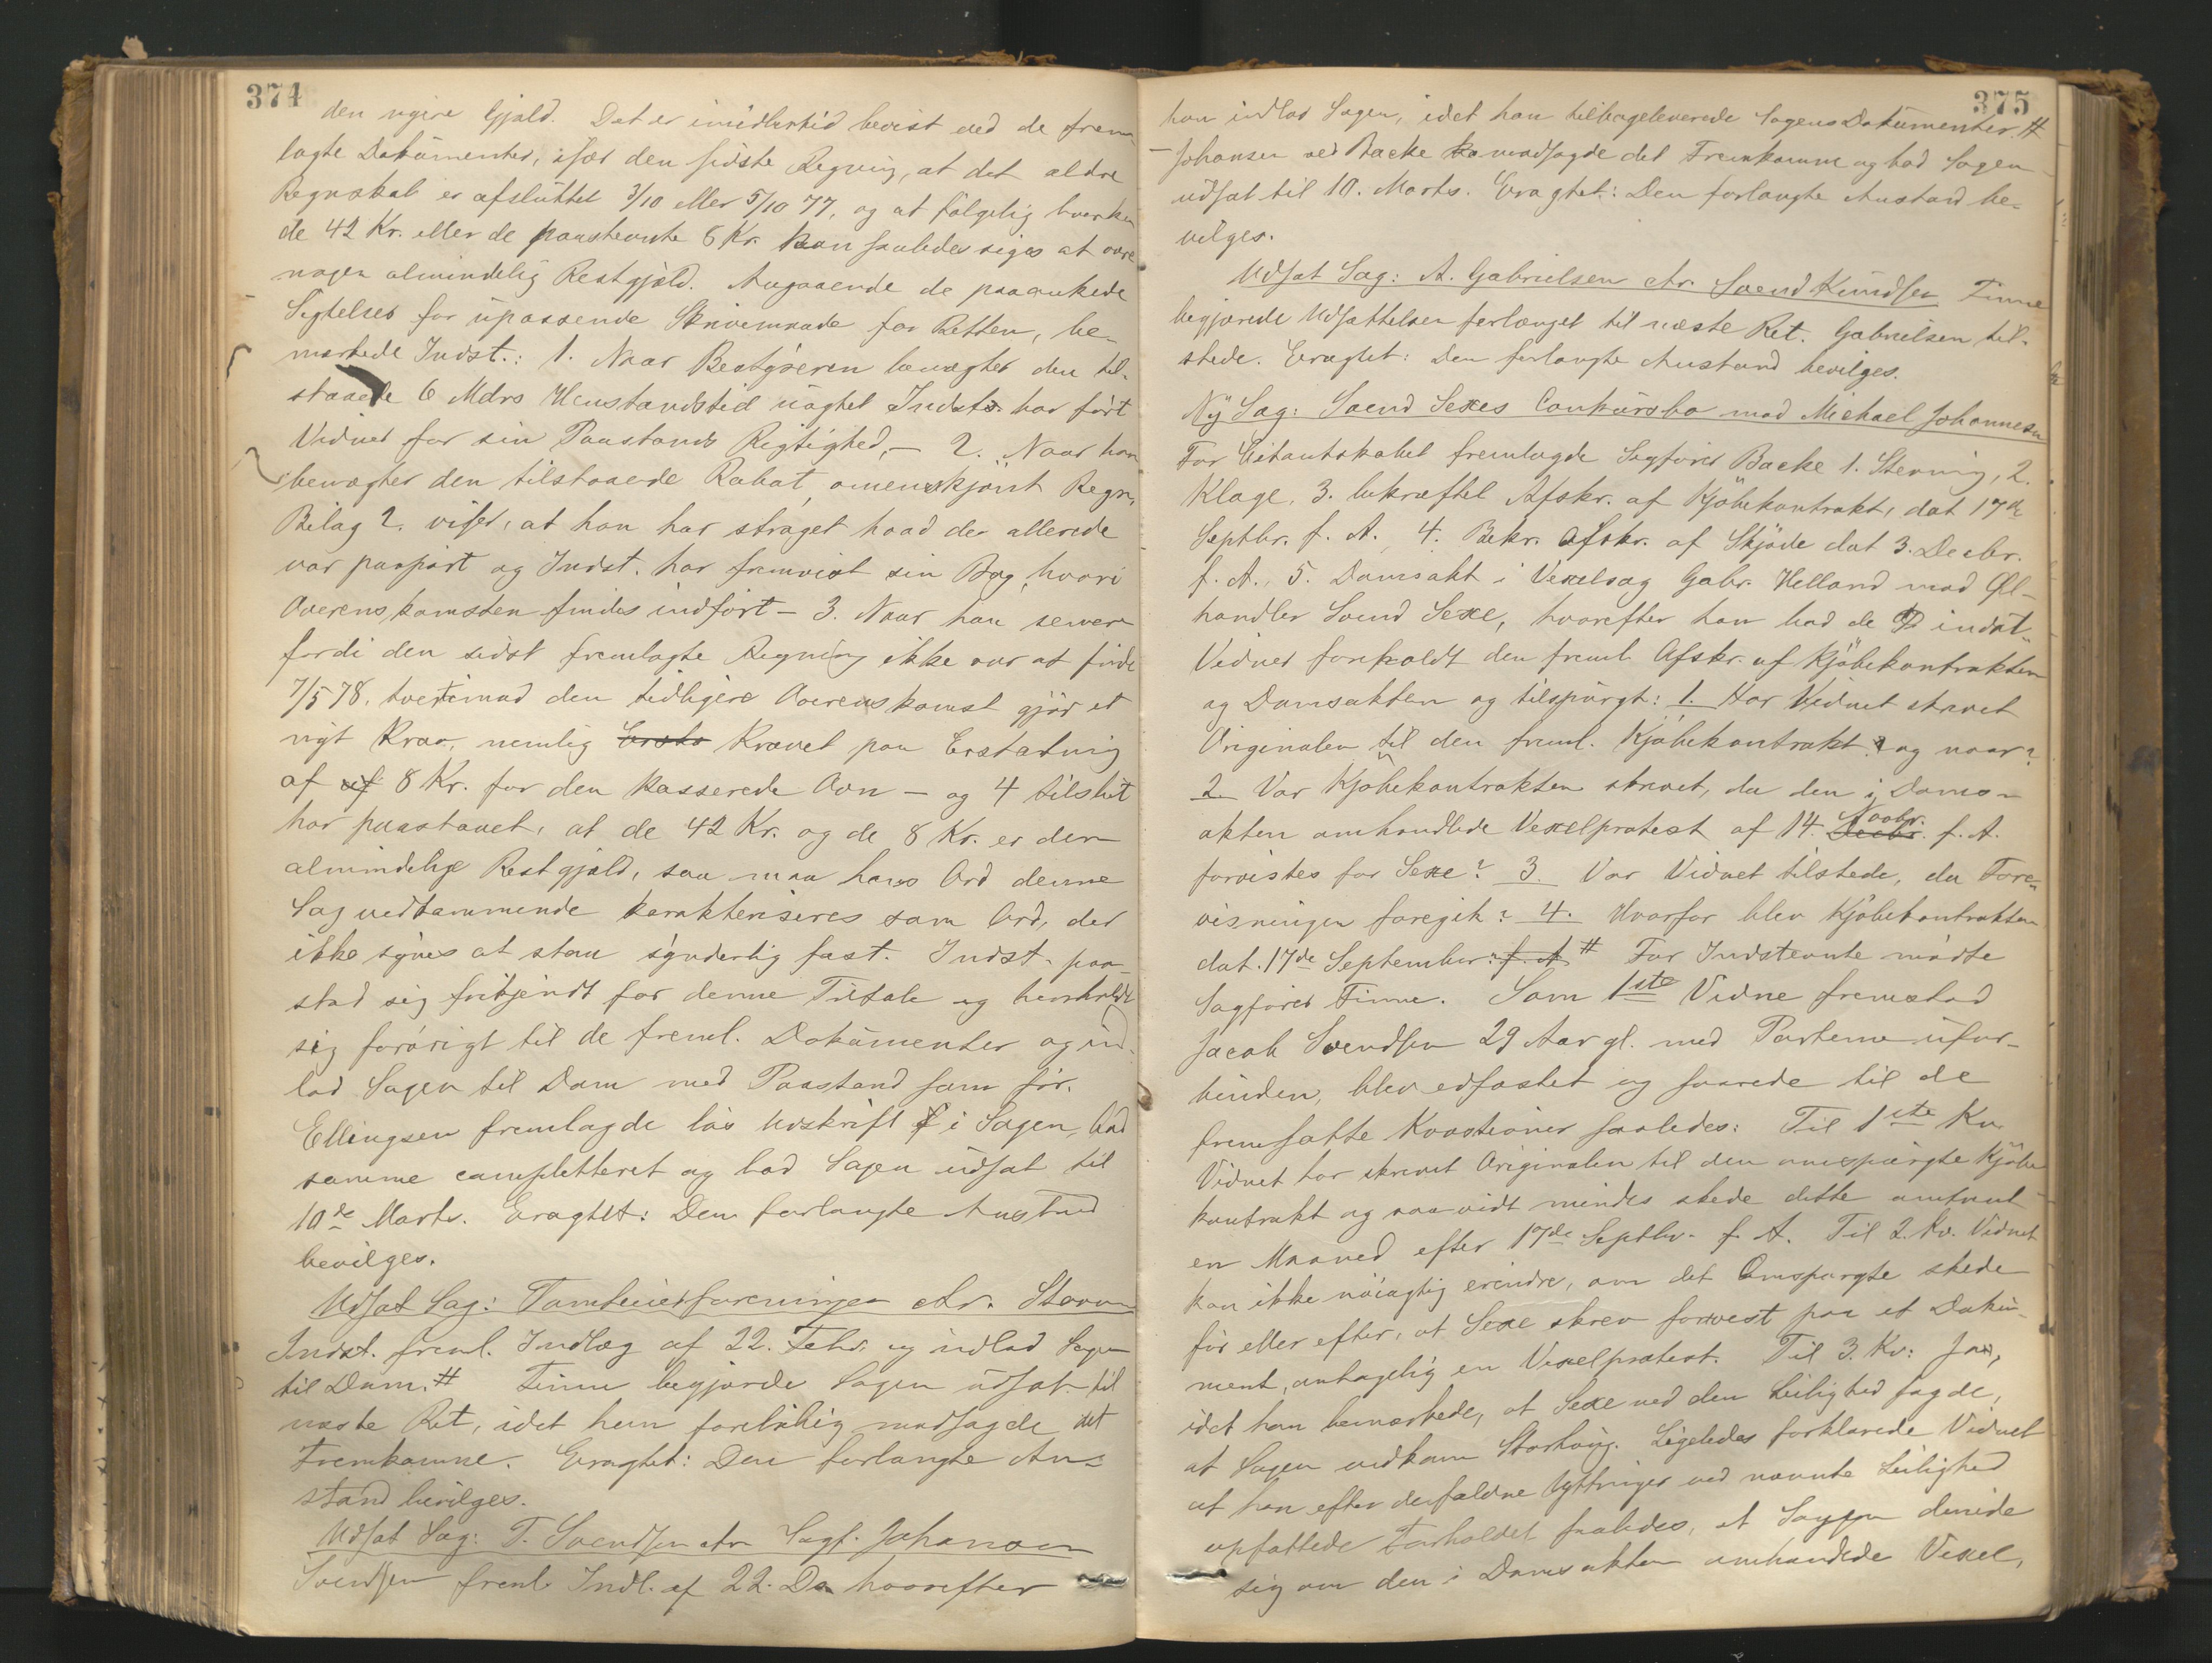 374
den nyere Gjæld. Det er imidlertid bevist ved de frem-
lagte Dokumenter, især den sidste Regning, at det ældre
Regnskab er afsluttet 3/10 eller 5/10 77, og at følgelig hverken
de 42 Kr. eller de paastevnte 8 Kr. kan saaledes siges at være
nogen almindelig Restgjæld. Angaaende de paaankede
Sigtelser for upassende Skrivemaade for Retten, be-
mærkede Indst.: 1. Naar Bestyreren benægter den til-
staaede 6 Mdrs Henstandstid uagtet Indst. har ført
Vidner for sin Paastands Rigtighed, — 2. Naar han
benægter den tilstaaede Rabat, omendskjønt Regn.
Bilag 2. viser, at han har strøget hvad der allerede
var paaført og Indst. har fremvist sin Bog, hvori
Overenskomsten findes indført — 3. Naar han
fordi den sidst fremlagte Regning ikke var at finde
7/5 78, tvertimod den tidligere Overenskomst gjør et
nyt Krav, nemlig Kravet paa Erstatning
af 8 Kr. for den kasserede Ovn — og 4 tilslut
har paastaaet, at de 42 Kr. og de 8 Kr. er den
almindelige Restgjæld, saa maa hans Ord denne
Sag vedkommende karakteriseres som Ord, der
ikke synes at staa synderlig fast. Indst. paa-
stod sig frikjendt for denne Tiltale og henholdt
sig forøvrigt til de freml. Dokumenter og ind-
lod Sagen til Dom med Paastand som før.
Ellingsen fremlagde løs Udskrift i Sagen, bad
samme completteret og bad Sagen udsat til
10de Marts. Eragtet: Den forlangte Anstand
bevilges.
Udsat Sag: Tømteierforeningen ctr.
Indst. freml. Indlæg af 22. Febr. og indlod Sagen
til Dom. # Finne begjærede Sagen udsat til
næste Ret, idet han foreløbig modsagde det
Fremkomne. Eragtet: Den forlangte An-
stand bevilges.
Udsat Sag: T. Svendsen ctr Sagf. Johansen
Svendsen freml. Indl. af 22. Ds. hvorefter
375
han indlod Sagen, idet han tilbageleverede Sagens Dokumenter. #
— Johansen ved Backe modsagde det Fremkomne og bad Sagen
udsat til 10. Marts. Eragtet: Den forlangte Anstand be-
vilges.
Udsat Sag: A. Gabrielsen ctr. Svend Knudsen Finne
begjærede Udsættelsen forlænget til næste Ret. Gabrielsen til-
stede. Eragtet: Den forlangte Anstand bevilges.
Ny Sag: Svend Sexes Conkursbo mod Michael Johannesen
For Citantskabet fremlagde Sagfører Backe 1. Stevning, 2.
Klage, 3. bekræftet Afskr. af Kjøbekontrakt, dat 17de
Septbr. f. A., 4. Bekr. Afskr. af Skjøde dat 3. Decbr.
f. A., 5. Domsakt i Vexelsag Gabr. Helland mod Øl-
handler Svend Sexe, hvorefter han bad de indst.
Vidner foreholdt den freml. Afskr. af Kjøbekontrakten
og Domsakten og tilspurgt: 1. Har Vidnet skrevet
Originalen til den freml. Kjøbekontrakt og naar?
2. Var Kjøbekontrakten skrevet, da den i Doms-
akten omhandlede Vexelprotest af 14. Decbr. Novbr. f. A.
forvistes for Sexe? 3. Var Vidnet tilstede, da Fore-
visningen foregik? 4. Hvorfor blev Kjøbekontrakten
dat. 17de September f. A # For Indstevnte mødte
Sagfører Finne. Som 1ste Vidne fremstod
Jacob Svendsen 29 Aar gl. med Parterne ufor-
bunden, blev edfæstet og svarede til de
fremsatte Kvæstioner saaledes: Til 1ste Kv.
Vidnet har skrevet Originalen til den omspurgte Kjøbe-
kontrakt og saavidt mindes skede dette omtrent
en Maaned efter 17de Septbr. f. A. Til 2. Kv. Vidnet
kan ikke nøiagtig erindre, om det Omspurgte skede
før eller efter, at Sexe skrev forvist paa et Doku-
ment, antagelig en Vexelprotest. Til 3. Kv: Ja,
idet han bemærkede, at Sexe ved den Leilighed sagde,
at Sagen vedkom Storhaug. Ligeledes forklarede Vidnet
at han efter de faldne Yttringer ved nævnte Leilighed
opfattede Forholdet saaledes, at Sagen dreiede
sig om den i Domsakten omhandlede Vexel,